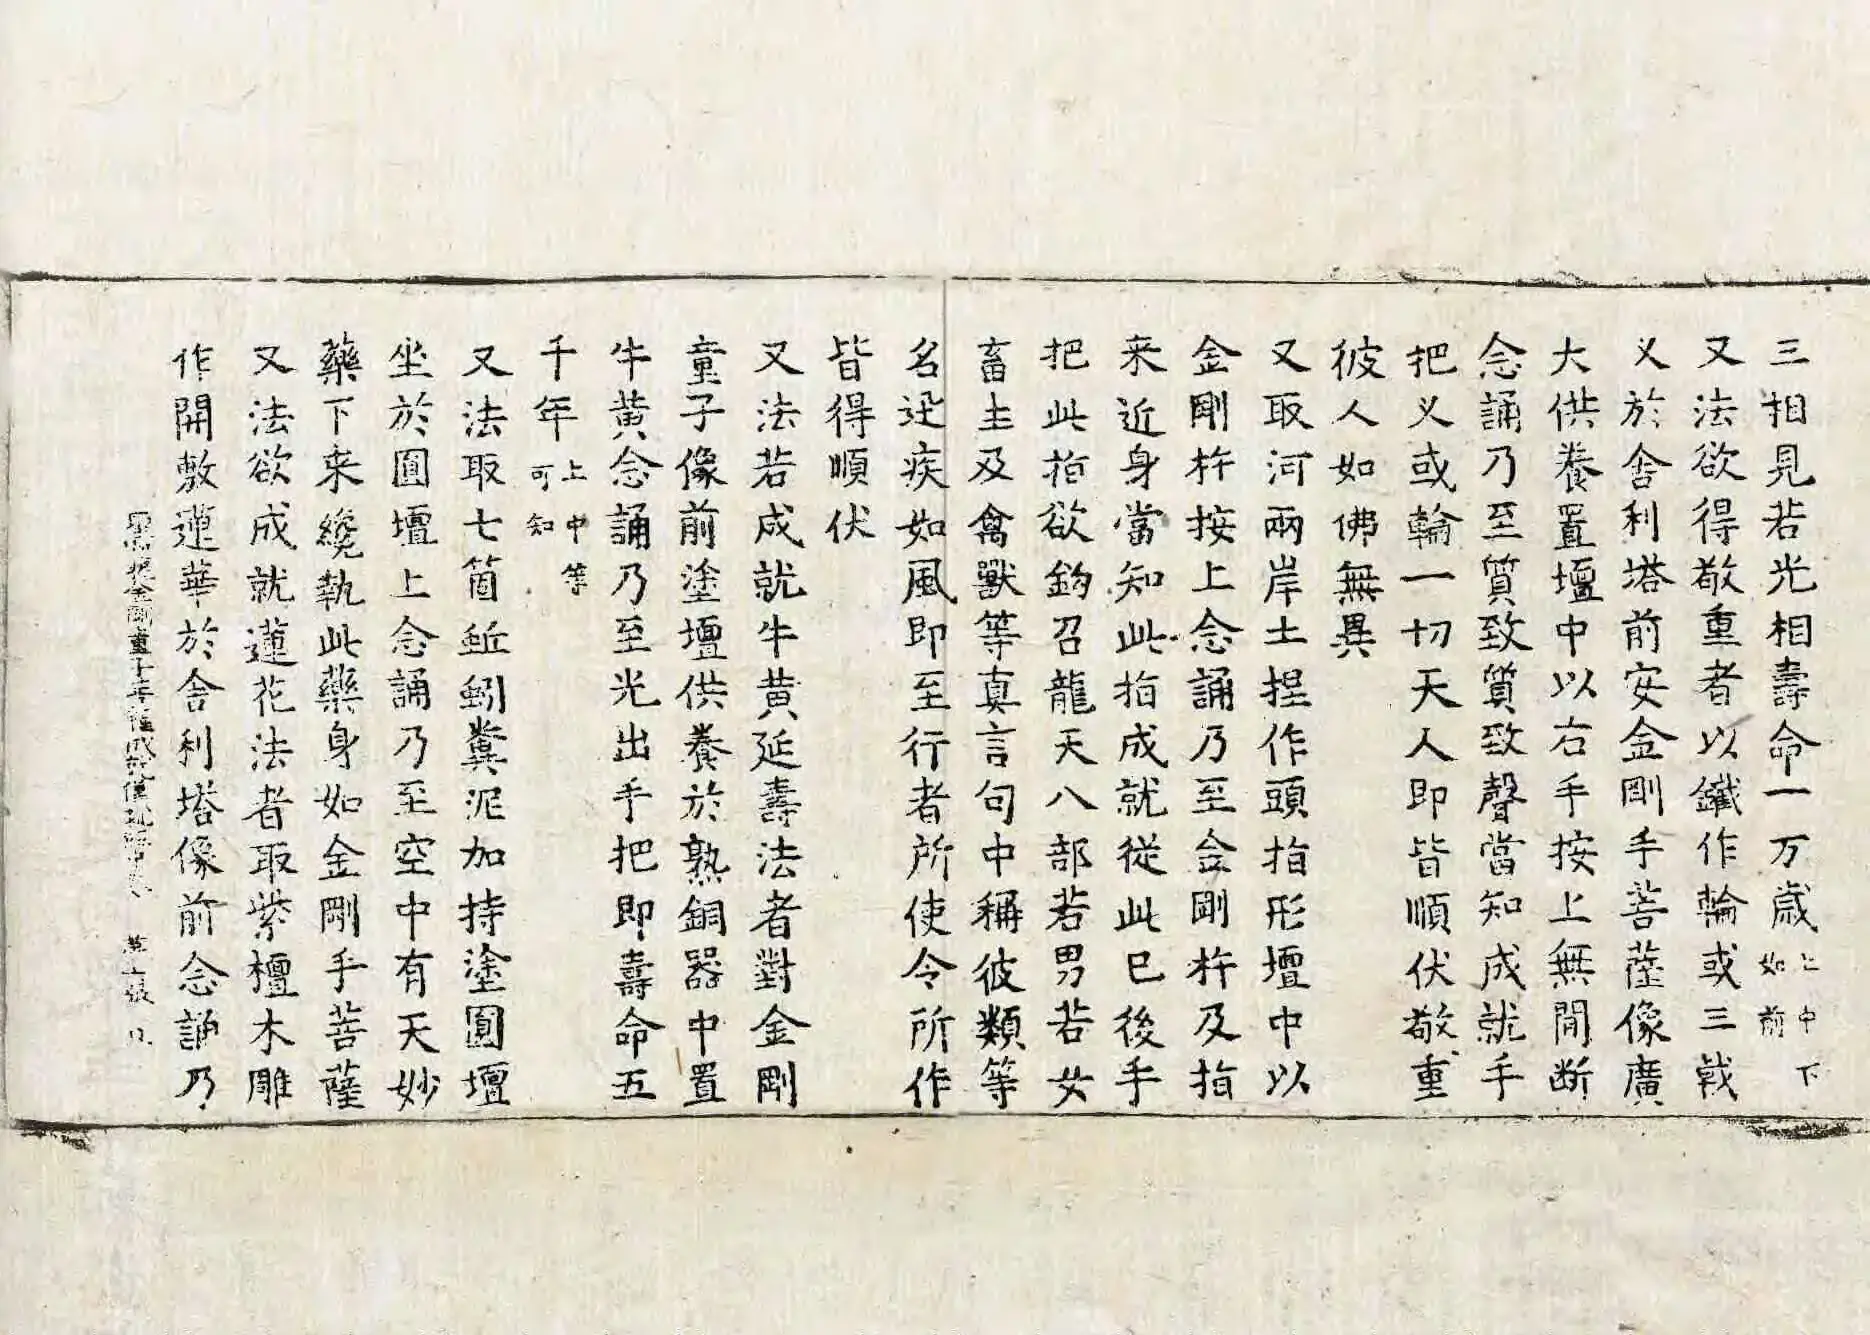 三相見若光相壽命一万歲上中下如前
又法欲得敬重者以鑯作輪或三戟
义於舍利塔前安金剛手菩薩像廣
大供養置壇中以右手按上無閒断
念誦乃至質致質致聲當知成就手
把义或輪一切天人即皆順伏敬重
彼人如佛無異
又取河兩岸土捏作頭指形壇中以
金剛杵按上念誦乃至金剛杵及指
来近身當知此指成就從此已後手
把此指欲鈎召龍天八部若男若女
畜生及禽獸等真言句中稱彼類等
名迅疾如風即至行者所使令所作
皆得順伏
又法若成就牛黄延壽法者對金剛
童子像前塗壇供養於熟銅器中置
牛黄念誦乃至光出手把即壽命五
千年上中等可知
又法取七箇蚯蚓糞泥加持塗圓壇
坐於圓壇上念誦乃至空中有天妙
藥下来纔執此藥身如金剛手菩薩
又法欲成就蓮花法者取紫檀木雕
作開敷蓮華於舍利塔像前念誦乃